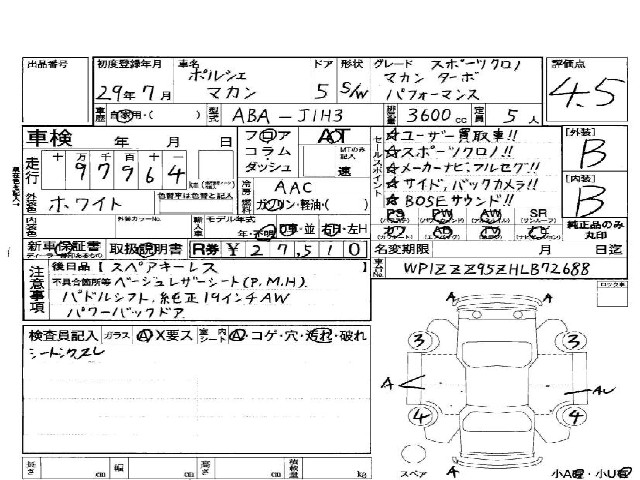 出品番号 初度登録年月 車名 ドア 形状 グレード スポーツクロノ 評価点
29年7月 ポルシェ マカン 5 S/W マカン ターボ パフォーマンス 4.5
車歴 自家用・( ) 型式 ABA-J1H3 排気量 3600cc 定員 5人
車検 年 月 日 フロア AT
コラム MTのみ記入
ダッシュ 速
走行 十 万 千 百 十 一
97964 km
セールスポイント
☆ユーザー買取車!!
☆スポーツクロノ!!
☆メーカーナビ,フルセグ!!
☆サイド,バックカメラ!!
☆BOSEサウンド!!
[外装] B
[内装] B
外装色 ホワイト 色替車は色替と記入
冷房 AAC
燃料 ガソリン・軽油・( )
内装色 外装カラーNo. 輸入車 モデル年式 年・不明 D車・並 右H・左H
PS PW AW SR
純正品のみ丸印
新車保証書 取扱説明書 R券 ¥27,510
名変期限 月 日迄
注意事項
後日品[スペアキーレス ]
不具合箇所等 ベージュレザーシート(P,M,H)
パドルシフト,純正19インチAW
パワーバックドア
車台No. WP1ZZZ95ZHLB72688
ロック車
検査員記入 ガラス A・X要ス 室内シート A・コゲ・穴・汚れ・破れ
シートシワスレ
A A
3 3
A AU
4 4
A
スペア 小A曖・小U曖
長さ cm 幅 cm 高さ cm 積載量 kg